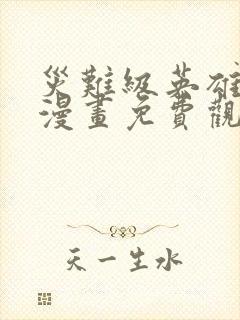 災難級英雄
漫畫免費觀
天一生水